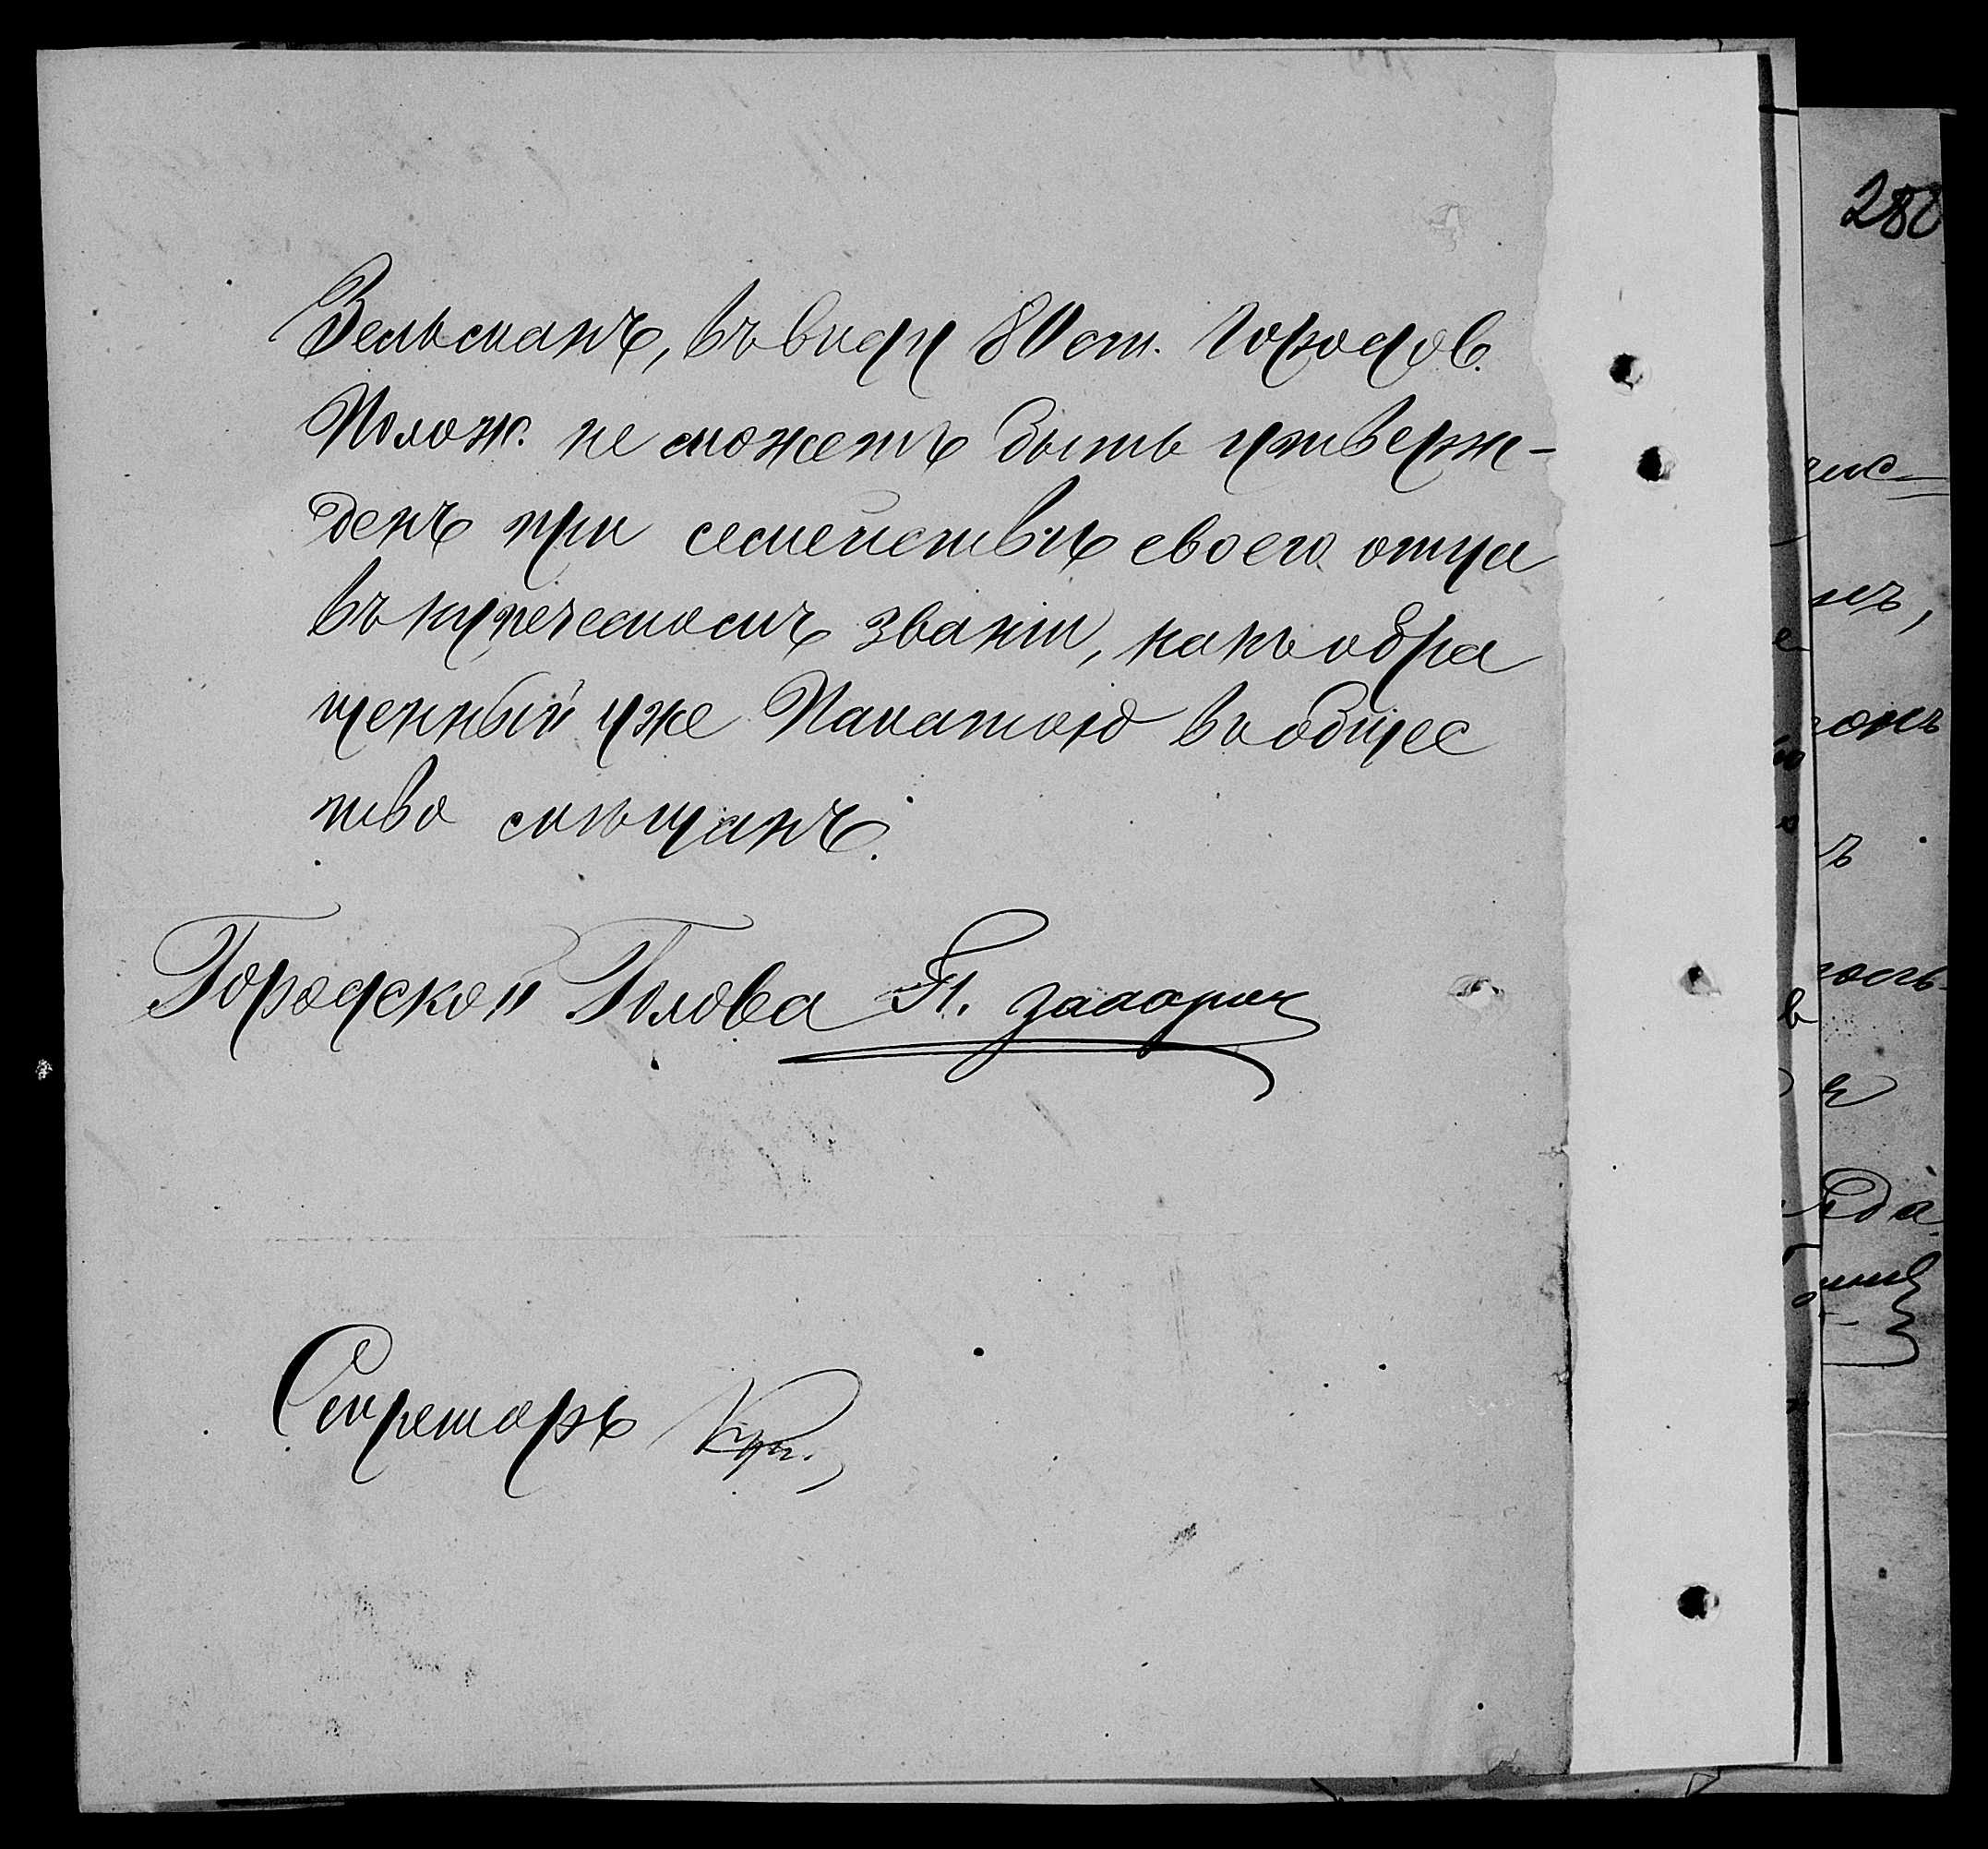 Зельманъ, въ виду 80 ст. Городов.
Полож. не можетъ быть утверж-
денъ при семействѣ своего отца
въ купеческомъ званіи, какъ обра
щенный уже Палатою въ общес
тво мѣщанъ.
Городской Голова П.
Секретарь
280